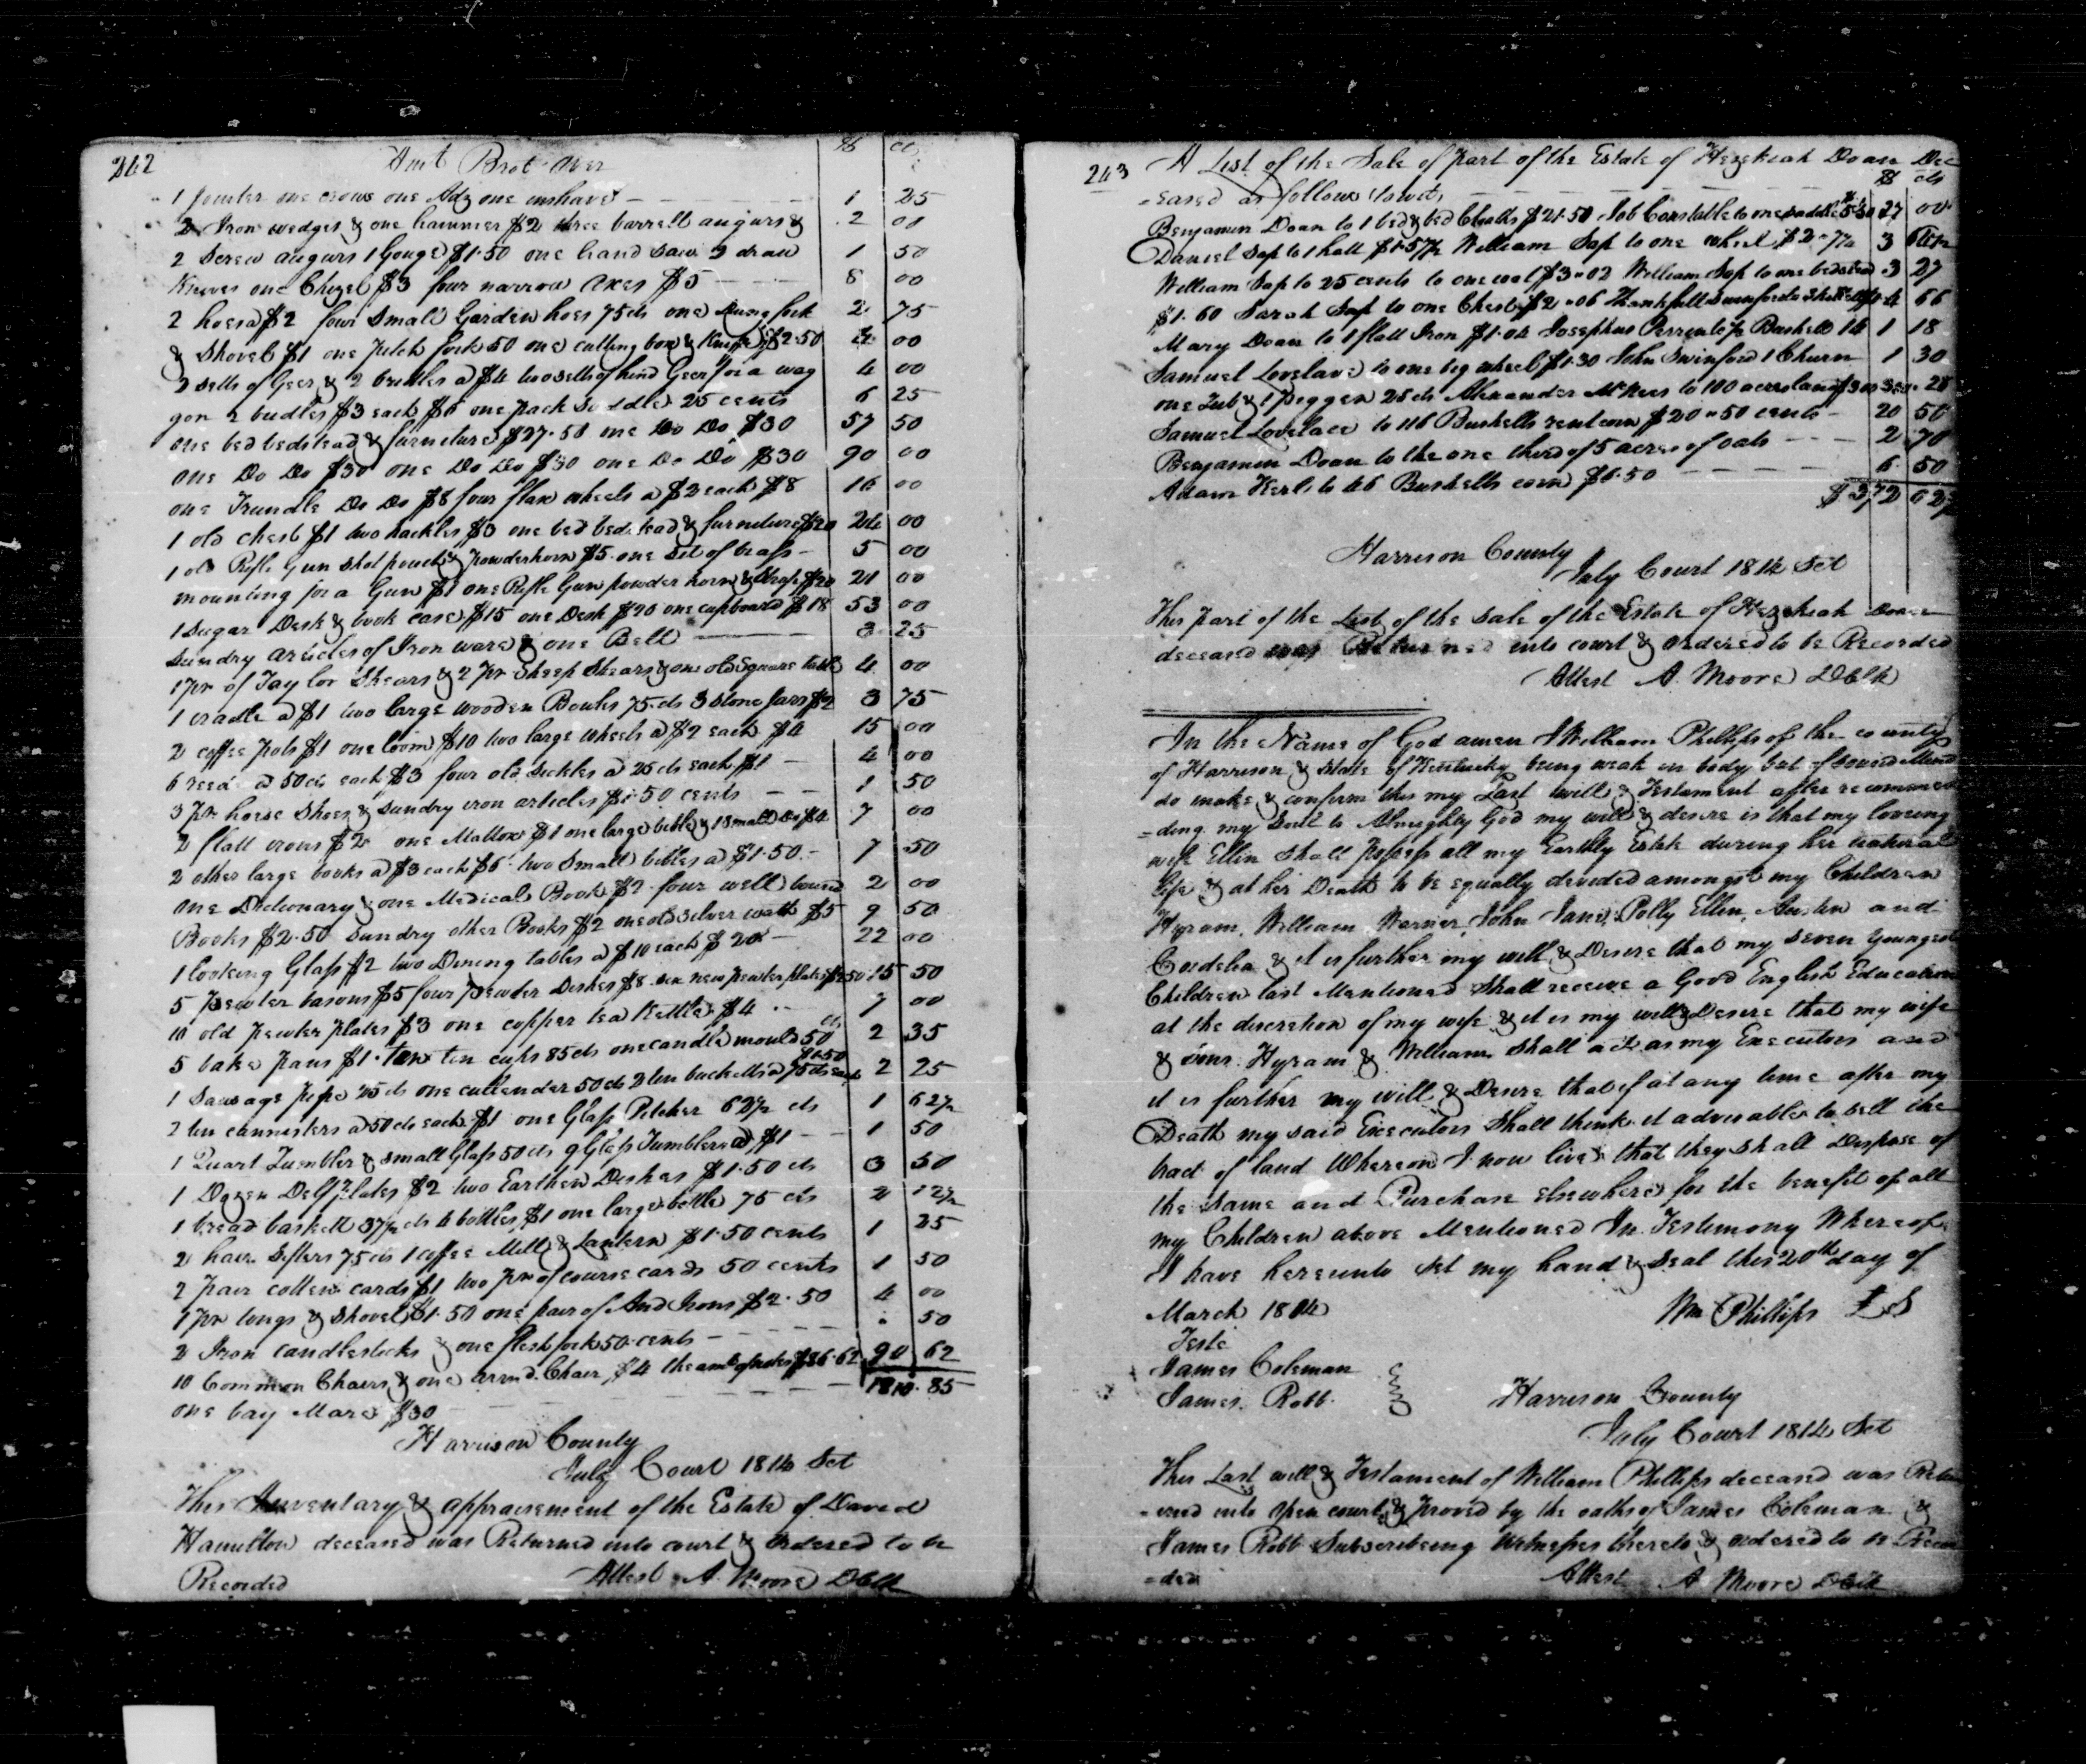 242 Amt Brot Over $ cts
1 Jointer one crows one Adz one inshave 1 25
2 Iron wedges & one hammer $2 three barrell augurs & 2 00
2 Screw augurs 1 Gouge $1.50 one hand saw 3 draw 1 50
Knives one Chizel $3 four narrow axes $5 8 00
2 hoes $2 four small Garden hoes 75 cts one Dung fork 2 75
& Shovel $1 one pitch fork 50 one cutting box & Knife $2.50 00
2 setts of Geer & 2 bridles a $4 two setts of hind Geer for a wag 4 00
gon 2 bridles $3 each $6 one pack Saddle 25 cents 6 25
one bed bedstead & furniture $27.50 one Do Do $30 57 50
one Do Do $30 one Do Do $30 one Do Do $30 90 00
one Trundle Do Do $8 four flax wheels a $2 each $8 16 00
1 old chest $1 two hackles $3 one bed bedstead & furniture $20 24 00
1 old Rifle Gun shot pouch & powderhorn $5 one set of brass 5 00
mounting for a Gun $1 one Rifle Gun powder horn & $20 21 00
1 Sugar Desk & book case $15 one Desk $20 one cupboard $18 53 00
Sundry articles of Iron ware & one Bell 3 25
1 pr of Taylor Shears & 2 pr Sheep Shears & one old Square table 4 00
1 cradle a $1 two large wooden Bowls 75 cts 3 stone jars $2 3 75
2 coffee pots $1 one loom $10 two large wheels a $2 each $4 15 00
6 reeds a 50 cts each $3 four old sickles a 25 cts each $1 4 00
3 pr horse shoes & sundry iron articles $1.50 cents 1 50
2 flatt irons $2 one Mattox $1 one large bible & 1 small Do $4 7 00
2 other large books a $3 each $6 two small bibles a $1.50 7 50
one Dictionary & one Medical Book $2 four well bound 2 00
Books $2.50 Sundry other Books $2 one old silver watch $5 9 50
1 looking Glass $2 two Dining tables a $10 each $20 22 00
5 pewter basons $5 four pewter Dishes $8 six new pewter plates $2.50 15 50
10 old pewter plates $3 one copper tea Kettle $4 7 00
5 bake pans $1 ten tin cups 85 cts one candle mould 50 cts 2 35
1 Sausage pipe 25 cts one cullender 50 cts 2 tin bucketts a 75 cts each $1.50 2 25
2 tin cannisters a 50 cts each $1 one Glass Pitcher 62½ cts 1 62½
1 Quart Tumbler & small Glass 50 cts 9 Glass Tumblers a $1 1 50
1 Dozen Delf plates $2 two Earthen Dishes $1.50 cts 3 50
1 bread baskett 37½ cts 4 bottles $1 one large bottle 75 cts 2 12½
2 hair Sifters 75 cts 1 coffee Mill & Lantern $1.50 cents 1 25
2 pair cotten cards $1 two pr of course cards 50 cents 1 50
1 pr tongs & shovel $1.50 one pair of And Irons $2.50 4 00
2 Iron candlesticks & one flesh fork 50 cents 50
10 Common Chairs & one armd Chair $4 the amt of notes $86.62 90 62
one bay Mare $30 1810.85
Harrison County
July Court 1814 Sct
This Inventary & appraisement of the Estate of David
Hamilton deceased was Returned into court & ordered to be
Recorded Attest A. Moore DClk
243 A List of the Sale of part of the Estate of Hezekiah Doan Dec
=eased as follows (towit) $ cts
Benjamin Doan to 1 bed & bed Cloaths $21.50 Job Constable to one saddle $5.50 27 00
Daniel Sap to 1 $1.57½ William Sap to one wheel $2 3
William Sap to 25 cents to one $3.02 William Sap to one bedstead 3 27
$1.60 Sarah Sap to one Chest $2.06 Thankfull Swinford 4 66
Mary Doan to 1 flatt Iron $1.04 Josephus Perrin Bushell 14 1 18
Samuel Lovelace to one big wheel $1.30 John Swinford 1 Churn 1 30
one Tub & 1 piggen 25 cts Alexander McKees to 100 acres land $300 300 25
Samuel Lovelace to 116 Bushells rent corn $20.50 cents 20 50
Benjamin Doan to the one third of 5 acres of oats 2 70
Adam Kerl to 46 Bushells corn $6.50 6 50
$372 62½
Harrison County
July Court 1814 Sct
This part of the List of the sale of the Estate of Hezekiah Doan
deceased was Returned into court & ordered to be Recorded
Attest A. Moore DClk
In the Name of God amen I William Phillips of the county
of Harrison & State of Kentucky being weak in body but of sound Mind
do make & confirm this my Last will & Testament after recommen
=ding my Soul to Almighty God my will & desire is that my loveing
wife Ellin shall possess all my Earthly Estate during her natural
life & at her Death to be equally devided amongst my Children
Hyram, William Warner, John Jane, Polly Ellin, Austin and
Cordelia & it is further my will & Desire that my seven youngest
Children last Mentioned Shall receive a Good English Education
at the discretion of my wife & it is my will & Desire that my wife
& sons Hyram & William Shall act as my Executors and
it is further my will & Desire that if at any time after my
Death my said Executors Shall think it adviseable to sell the
tract of land Whereon I now live that they shall Dispose of
the same and Purchase elsewhere for the benefit of all
my Children above Mentioned In Testimony Whereof
I have hereunto set my hand & seal this 20th day of
March 1814 Wm Phillips LS
Teste
James Coleman
James Robb
Harrison County
July Court 1814 Sct
This Last will & Testament of William Phillips deceased was Retur
=ned into open court & proved by the oaths of James Coleman &
James Robb Subscribeing Witnesses thereto & ordered to be Recor
=ded Attest A Moore DClk